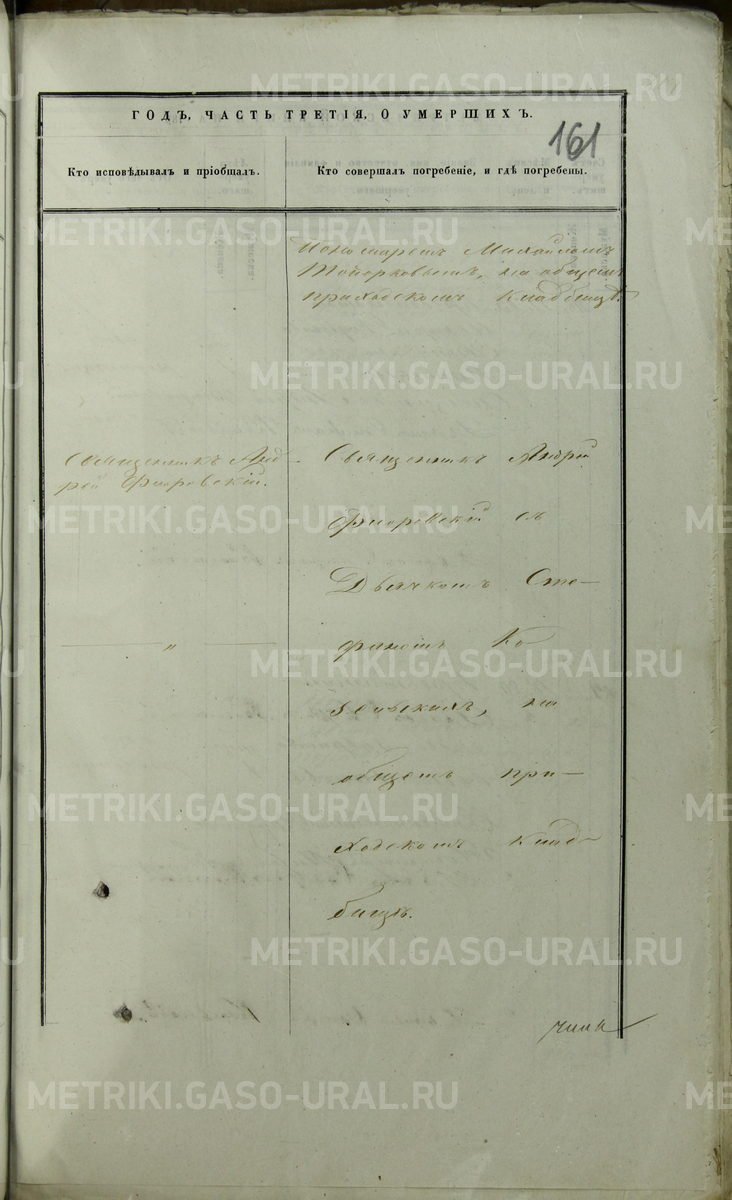 161
ГОДЪ, ЧАСТЬ ТРЕТІЯ, О УМЕРШИХЪ.
Кто исповѣдывалъ и пріобщалъ.
Кто совершалъ погребеніе, и гдѣ погребены.
Пономаремъ Михайломъ
на общемъ
приходскомъ кладбищѣ.
Священникъ Анд
рей Флоровскій.
"
Священникъ Андрей
Флоровскій съ
Дьячкомъ Сте-
фаномъ Ко
зельскимъ, на
общемъ при-
ходскомъ клад-
бищѣ.
METRIKI.GASO-URAL.RU